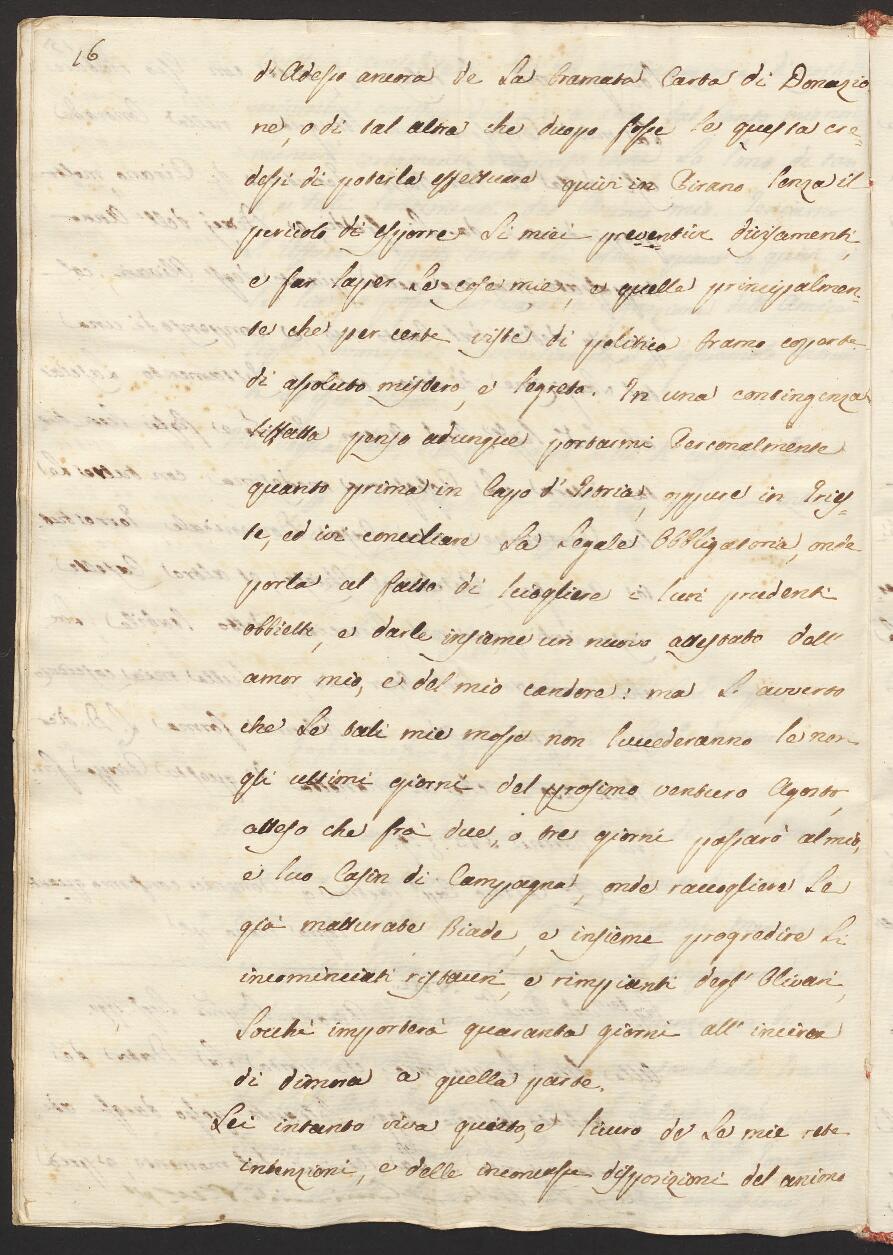 16
d'Adesso ancora de la bramata Carta di Donazio
ne, o di tal altra che duopo fosse se questa cre=
dessi di poterla effettuare quivi in Pirano senza il
pericolo di esporre li miei preventivi divisamenti,
e far saper le cose mie, e quelle principalmen-
te che per certe viste di politica bramo coperte
di assoluto mistero, e segreto. In una contingenza
siffatta penso adunque portarmi Personalmente
quanto prima in Capo d'Istria, oppure in Tries-
te, ed ivi conciliare la Legale Obbligatoria, onde
porla al fatto di sciogliere i suoi prudenti
obbietti, e darle insieme un nuovo attestato dell'
amor mio, e del mio candore: ma L. avverto
che le tali mie mosse non succederanno se non
gli ultimi giorni del prosimo venturo Agosto,
atteso che frà due, o tre giorni passarò al mio,
e suo Casin di Campagna, onde raccogliere le
già matturate Biade, e insieme progredire li
incominciati ristauri, e rimpianti degl'Olivari,
Locchè importerà quaranta giorni all'incirca
di dimora a quella parte.
Lei intanto viva quieto, e sicuro de le mie rete
intenzioni, e delle inconcusse disposizioni del animo